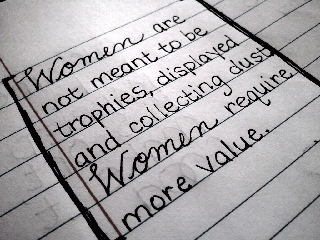 Women are
not meant to be
trophies, displayed
and collecting dust.
Women require
more value.